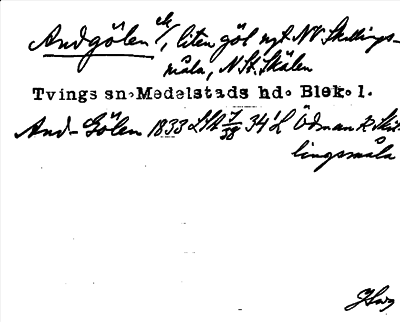 Andgölen ck/, liten göl ngt NV Skillings-
måla, N St. Skälen
Tvings sn. Medelstads hd. Blek. l.
And-Gölen 1833 LSA 34 L Ödman R Skil
lingsmåla